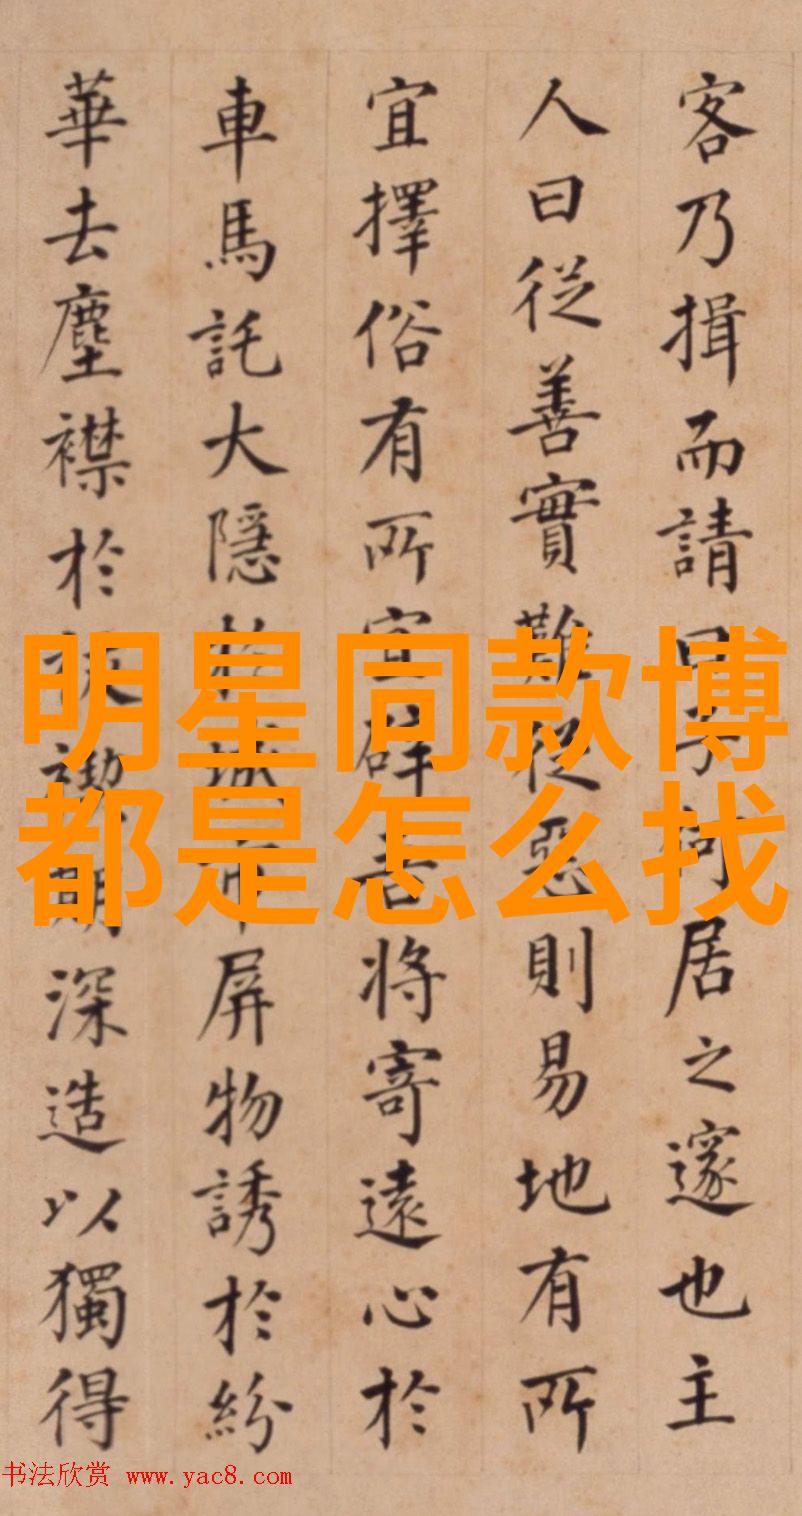 客乃揖而請曰子何居之邃也主
人曰從善實難從惡則易地有所
宜擇俗有所宜辟吾將寄遠心於
車馬託大隱於城市屏物誘於紛
華去塵襟於深造以獨得
明星同款博
都是怎么找
书法欣赏 www.yac8.com